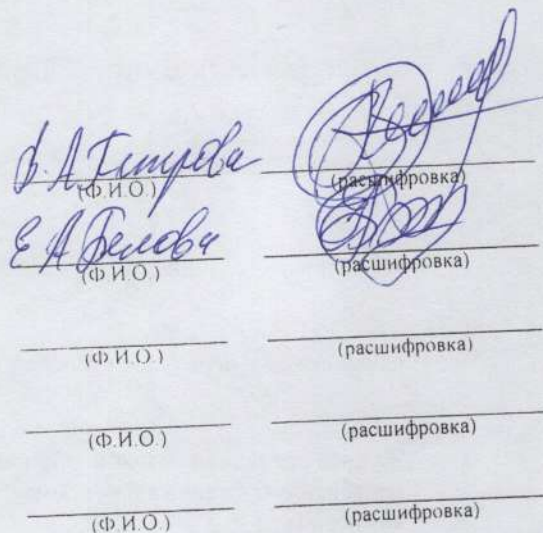 В. А. Петрова
(Ф.И.О.) (расшифровка)
Е А Белова
(Ф.И.О.) (расшифровка)
(Ф.И.О.) (расшифровка)
(Ф.И.О.) (расшифровка)
(Ф.И.О.) (расшифровка)